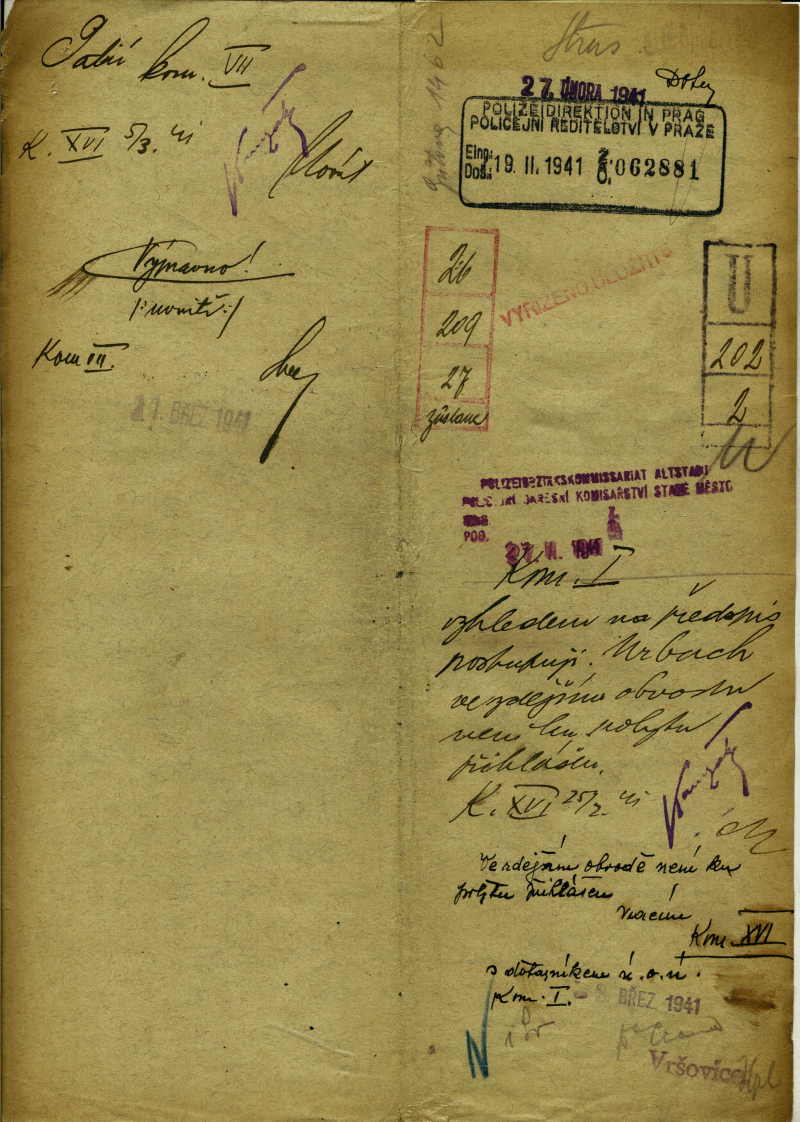 Patří
kom. VII
K. XVI 5/3. 41
Výpravno!
/: uvnitř :/
Kom III.
21. BŘEZ 1941
27. ÚNORA 1941
POLIZEIDIREKTION IN PRAG
POLICEJNÍ ŘEDITELSTVÍ V PRAZE
Eing.:
Doš.: 19. II. 1941 Z. O. 062881
26
209
27
zůstane
VYŘÍZENO ULOŽITI
U
202
2
POLIZEIBEZIRKSKOMMISSARIAT ALTSTADT
POLICEJNÍ OKRESNÍ KOMISAŘSTVÍ STARÉ MĚSTO
POD.
27. II. 1941
Kom. I
vzhledem na předpis
postupuji. Urbach
ve zdejším obvodu
není ku pobytu
přihlášen.
K. XVI 25/2. 41
Ve zdejším obvodě není ku
pobytu přihlášen
Vracím
Kom. XVI
s dotazníkem
Kom. I. - 8. BŘEZ 1941
Vršovice